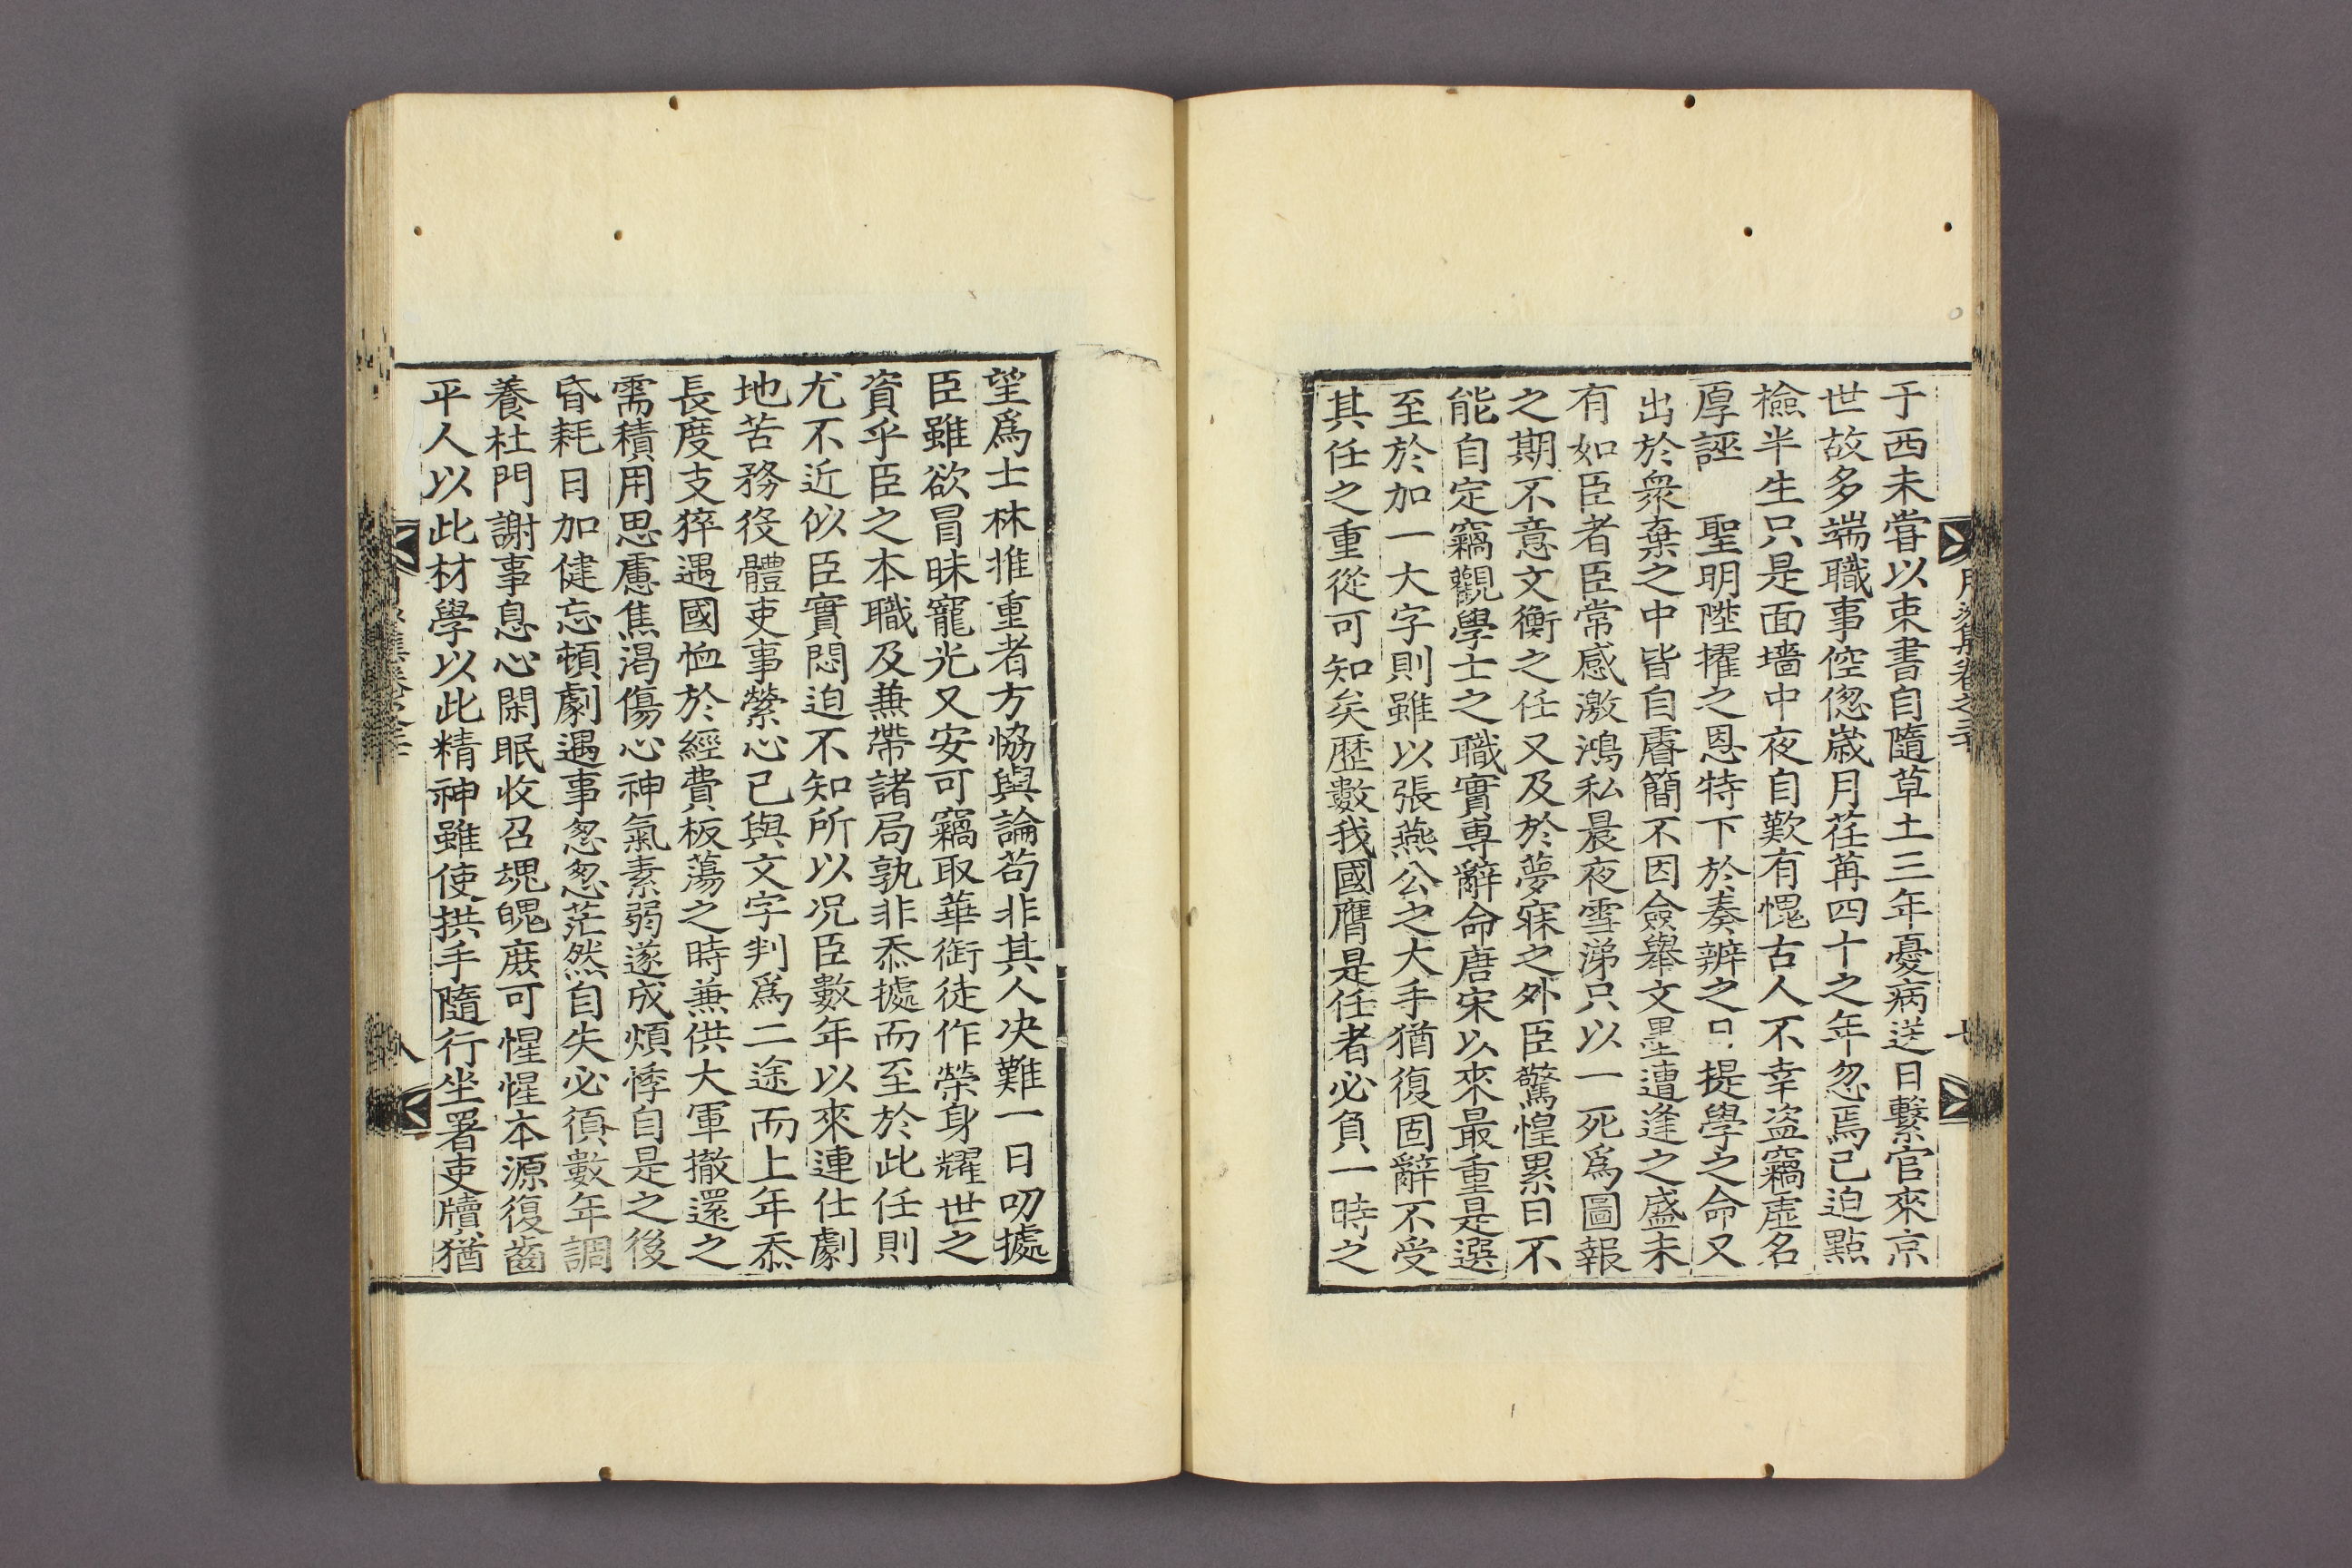 于西未甞以束書自隨草土三年憂病送日繫官來京
世故多端職事倥偬歲月荏苒四十之年忽焉已迫點
檢半生只是面墻中夜自歎有愧古人不幸盗竊虛名
厚誣 聖明陞擢之恩特下於奏辨之 提學之命又
出於衆棄之中皆自睿簡不因僉擧文墨遭逢之盛未
有如臣者臣常感激鴻私晨夜雪涕只以一死爲圖報
之期不意文衡之任又及於夢寐之外臣驚惶累日不
能自定竊觀學士之職實專辭命唐宋以來最重是選
至於加一大字則雖以張燕公之大手猶復固辭不受
其任之重從可知矣歷數我國膺是任者必負一時之
月沙集卷之三十
七
望爲士林推重者方恊輿論苟非其人决難一日叨據
臣雖欲冒昧寵光又安可竊取華銜徒作榮身耀世之
資乎臣之本職及兼帶諸局孰非忝據而至於此任則
尤不近似臣實悶迫不知所以况臣數年以來連仕劇
地苦務役體吏事縈心已與文字判爲二途而上年忝
長度支猝遇國恤於經費板蕩之時兼供大軍撤還之
需積用思慮焦渴傷心神氣素弱遂成煩悸自是之後
昏耗日加健忘頓劇遇事怱怱茫然自失必須數年調
養杜門謝事息心閑眠收召魂魄庶可惺惺本源復齒
平人以此材學以此精神雖使拱手隨行坐署吏牘猶
八